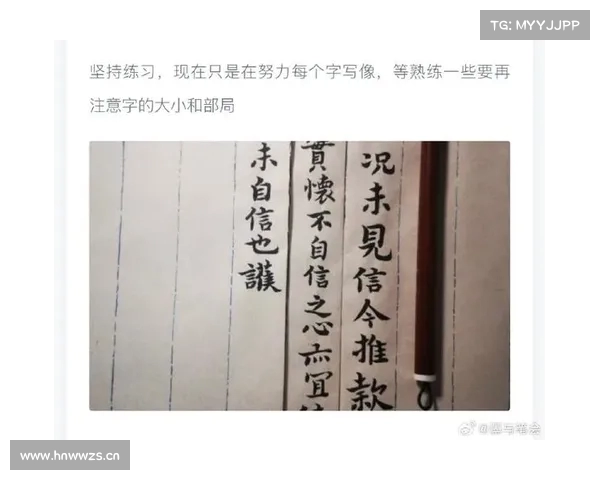 TG: MYYJJPP
坚持练习，现在只是在努力每个字写像，等熟练一些要再
注意字的大小和部局
况未見信今推款
實懷不自信之心亦冝
未自信也謹
www.hnwwzs.cn